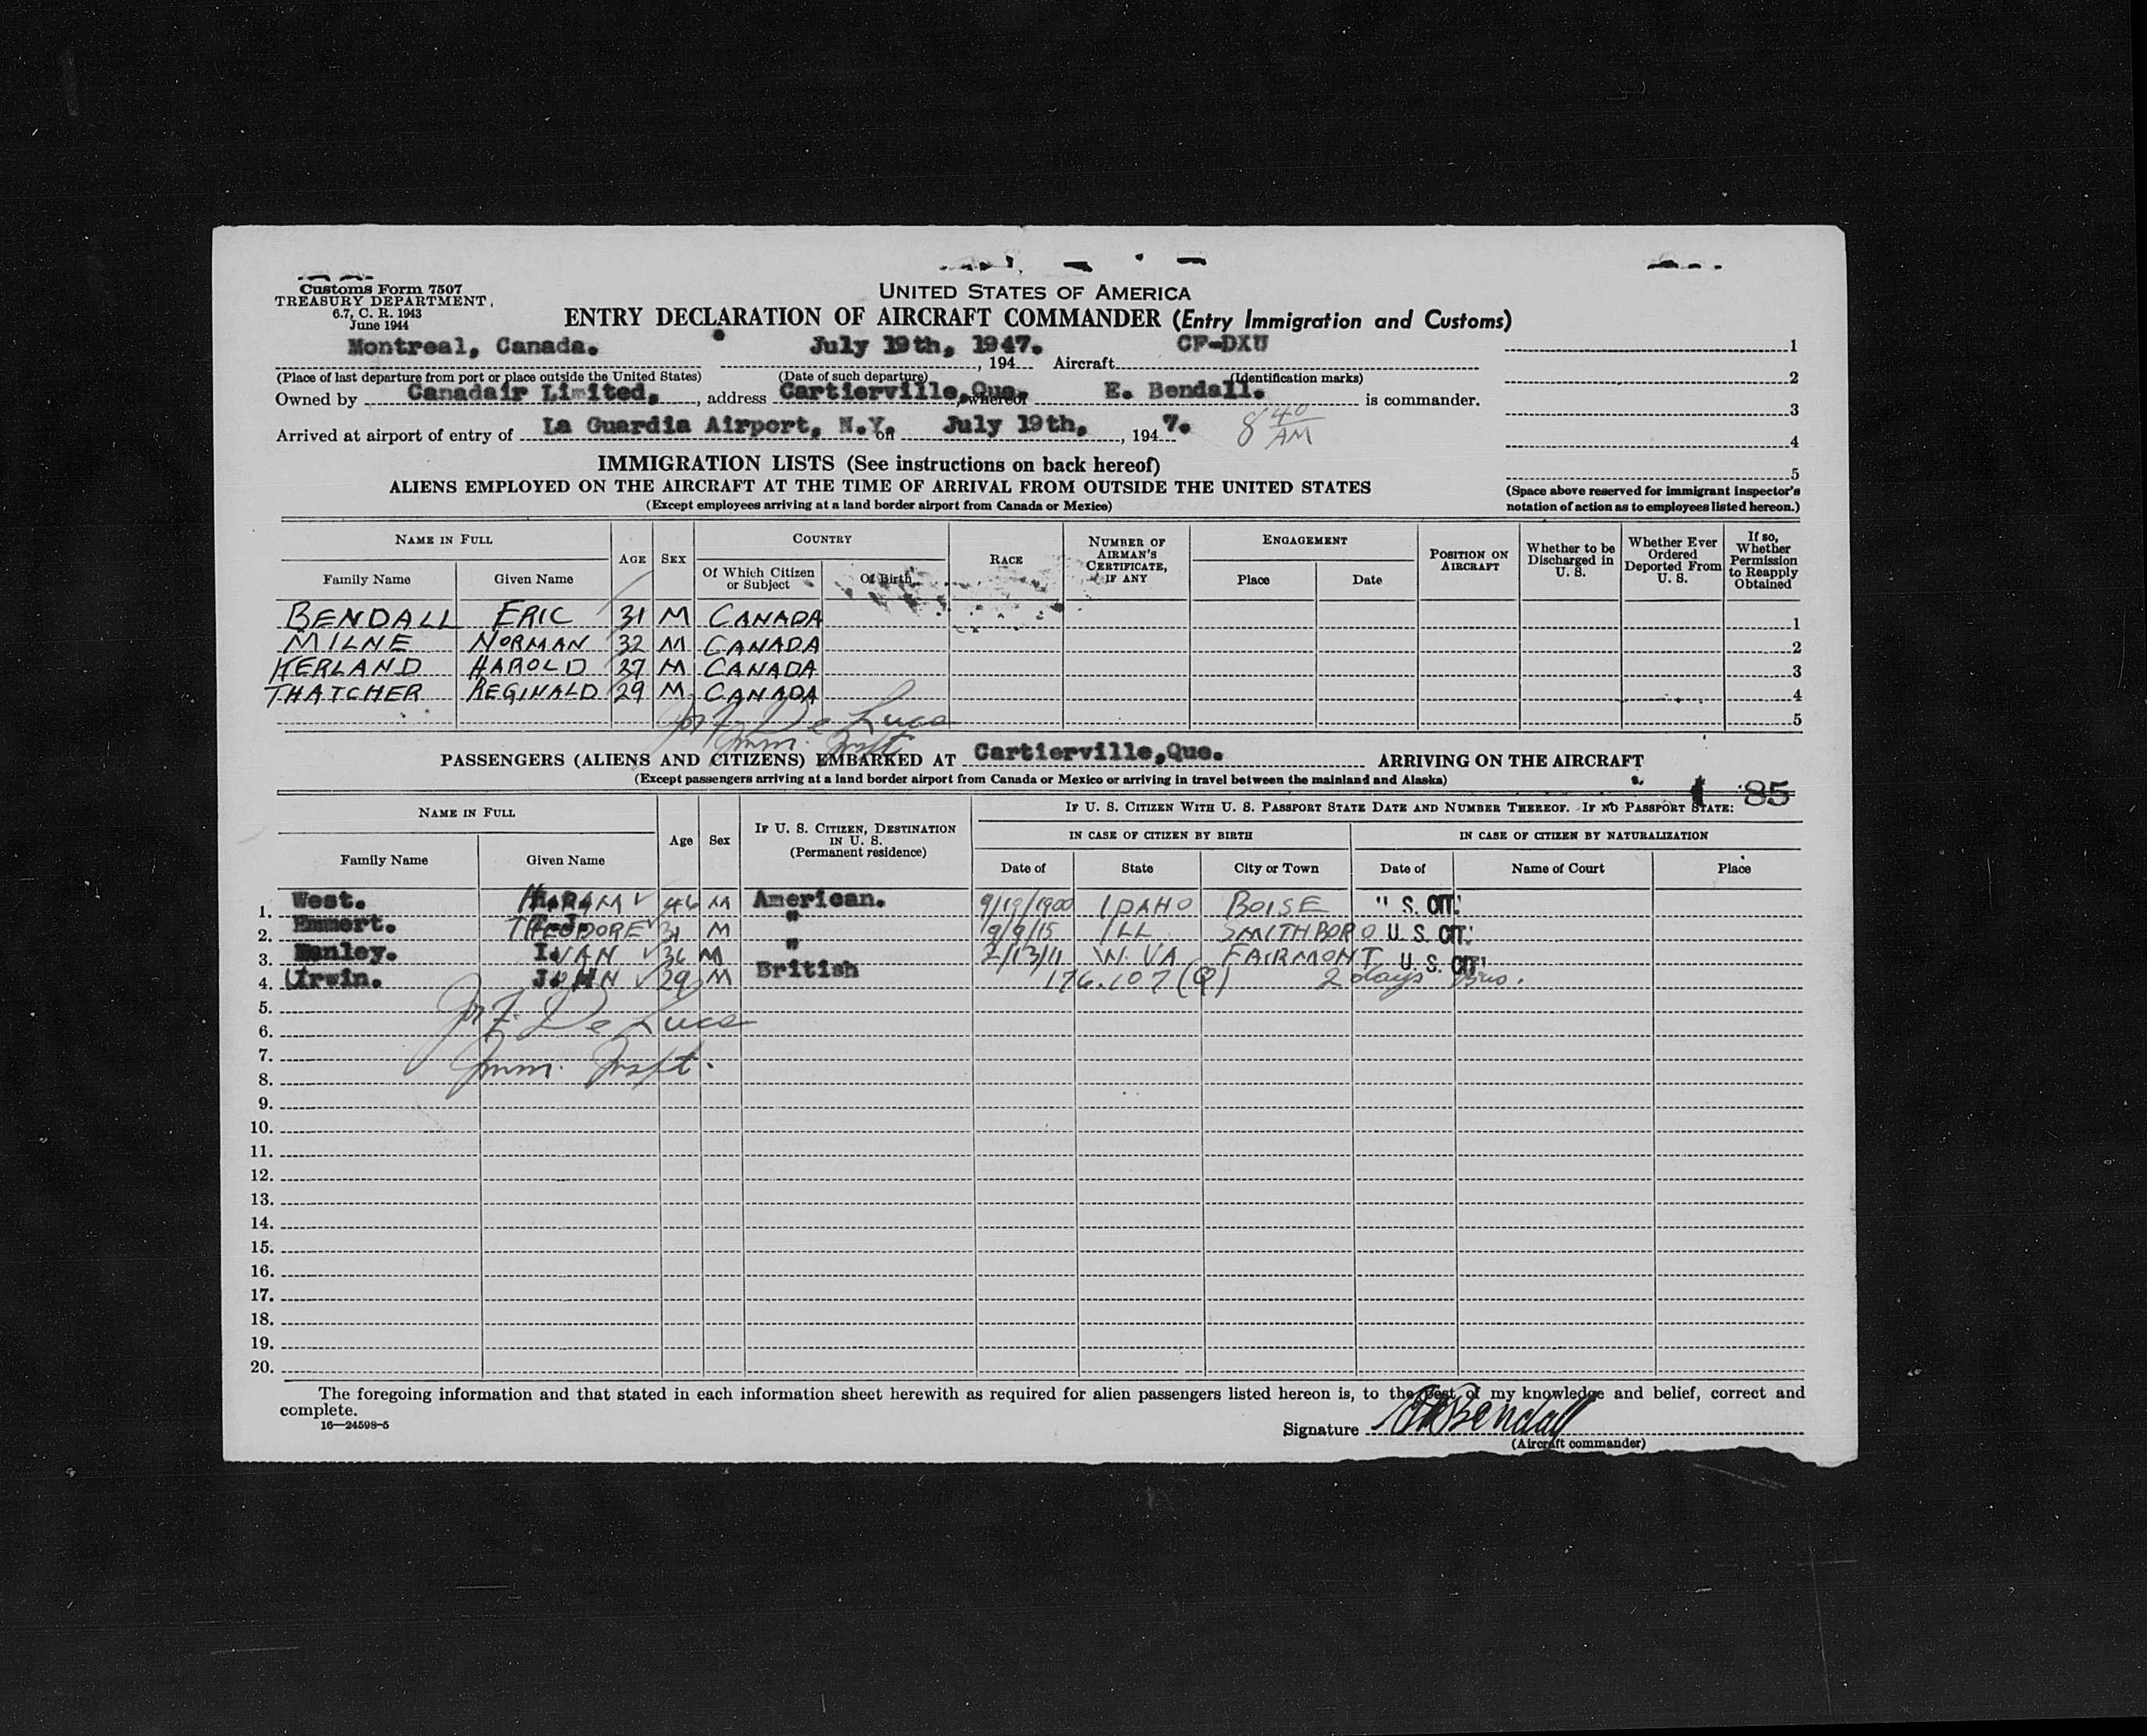 Customs Form 7507
TREASURY DEPARTMENT
6.7, C. R. 1943
June 1944
UNITED STATES OF AMERICA
ENTRY DECLARATION OF AIRCRAFT COMMANDER (Entry Immigration and Customs)
Montreal, Canada. July 19th, 1947. , 194 Aircraft CF-DXU 1
(Place of last departure from port or place outside the United States) (Date of such departure) (Identification marks) 2
Owned by Canadair Limited, , address Cartierville, Que. whereof E. Bendall. is commander. 3
Arrived at airport of entry of La Guardia Airport, N.Y. on July 19th, , 1947. 8 40 AM 4
5
IMMIGRATION LISTS (See instructions on back hereof)
ALIENS EMPLOYED ON THE AIRCRAFT AT THE TIME OF ARRIVAL FROM OUTSIDE THE UNITED STATES
(Except employees arriving at a land border airport from Canada or Mexico)
(Space above reserved for immigrant inspector's
notation of action as to employees listed hereon.)
NAME IN FULL AGE SEX COUNTRY RACE NUMBER OF AIRMAN'S CERTIFICATE, IF ANY ENGAGEMENT POSITION ON AIRCRAFT Whether to be Discharged in U. S. Whether Ever Ordered Deported From U. S. If so, Whether Permission to Reapply Obtained
Family Name Given Name Of Which Citizen or Subject Of Birth Place Date
BENDALL ERIC 31 M CANADA 1
MILNE NORMAN 32 M CANADA 2
KERLAND HAROLD 37 M CANADA 3
THATCHER REGINALD 29 M CANADA 4
De Luca 5
Imm. Inspt
PASSENGERS (ALIENS AND CITIZENS) EMBARKED AT Cartierville, Que. ARRIVING ON THE AIRCRAFT
(Except passengers arriving at a land border airport from Canada or Mexico or arriving in travel between the mainland and Alaska)
85
NAME IN FULL Age Sex IF U. S. CITIZEN, DESTINATION IN U. S. (Permanent residence) IF U. S. CITIZEN WITH U. S. PASSPORT STATE DATE AND NUMBER THEREOF. IF NO PASSPORT STATE:
IN CASE OF CITIZEN BY BIRTH IN CASE OF CITIZEN BY NATURALIZATION
Family Name Given Name Date of State City or Town Date of Name of Court Place
1. West. 46 M American. 9/19/1900 IDAHO BOISE U. S. CIT.
2. Emmert. THEODORE 31 M " 9/9/15 ILL SMITHBORO U. S. CIT.
3. IVAN 36 M " 2/13/11 W. VA FAIRMONT U. S. CIT
4. Irwin. JOHN 29 M British 176.107 (Q) 2 days
5.
De Luca
6.
7.
Imm. Inspt.
8.
9.
10.
11.
12.
13.
14.
15.
16.
17.
18.
19.
20.
The foregoing information and that stated in each information sheet herewith as required for alien passengers listed hereon is, to the best of my knowledge and belief, correct and
complete.
16—24598-5
Signature Bendall
(Aircraft commander)